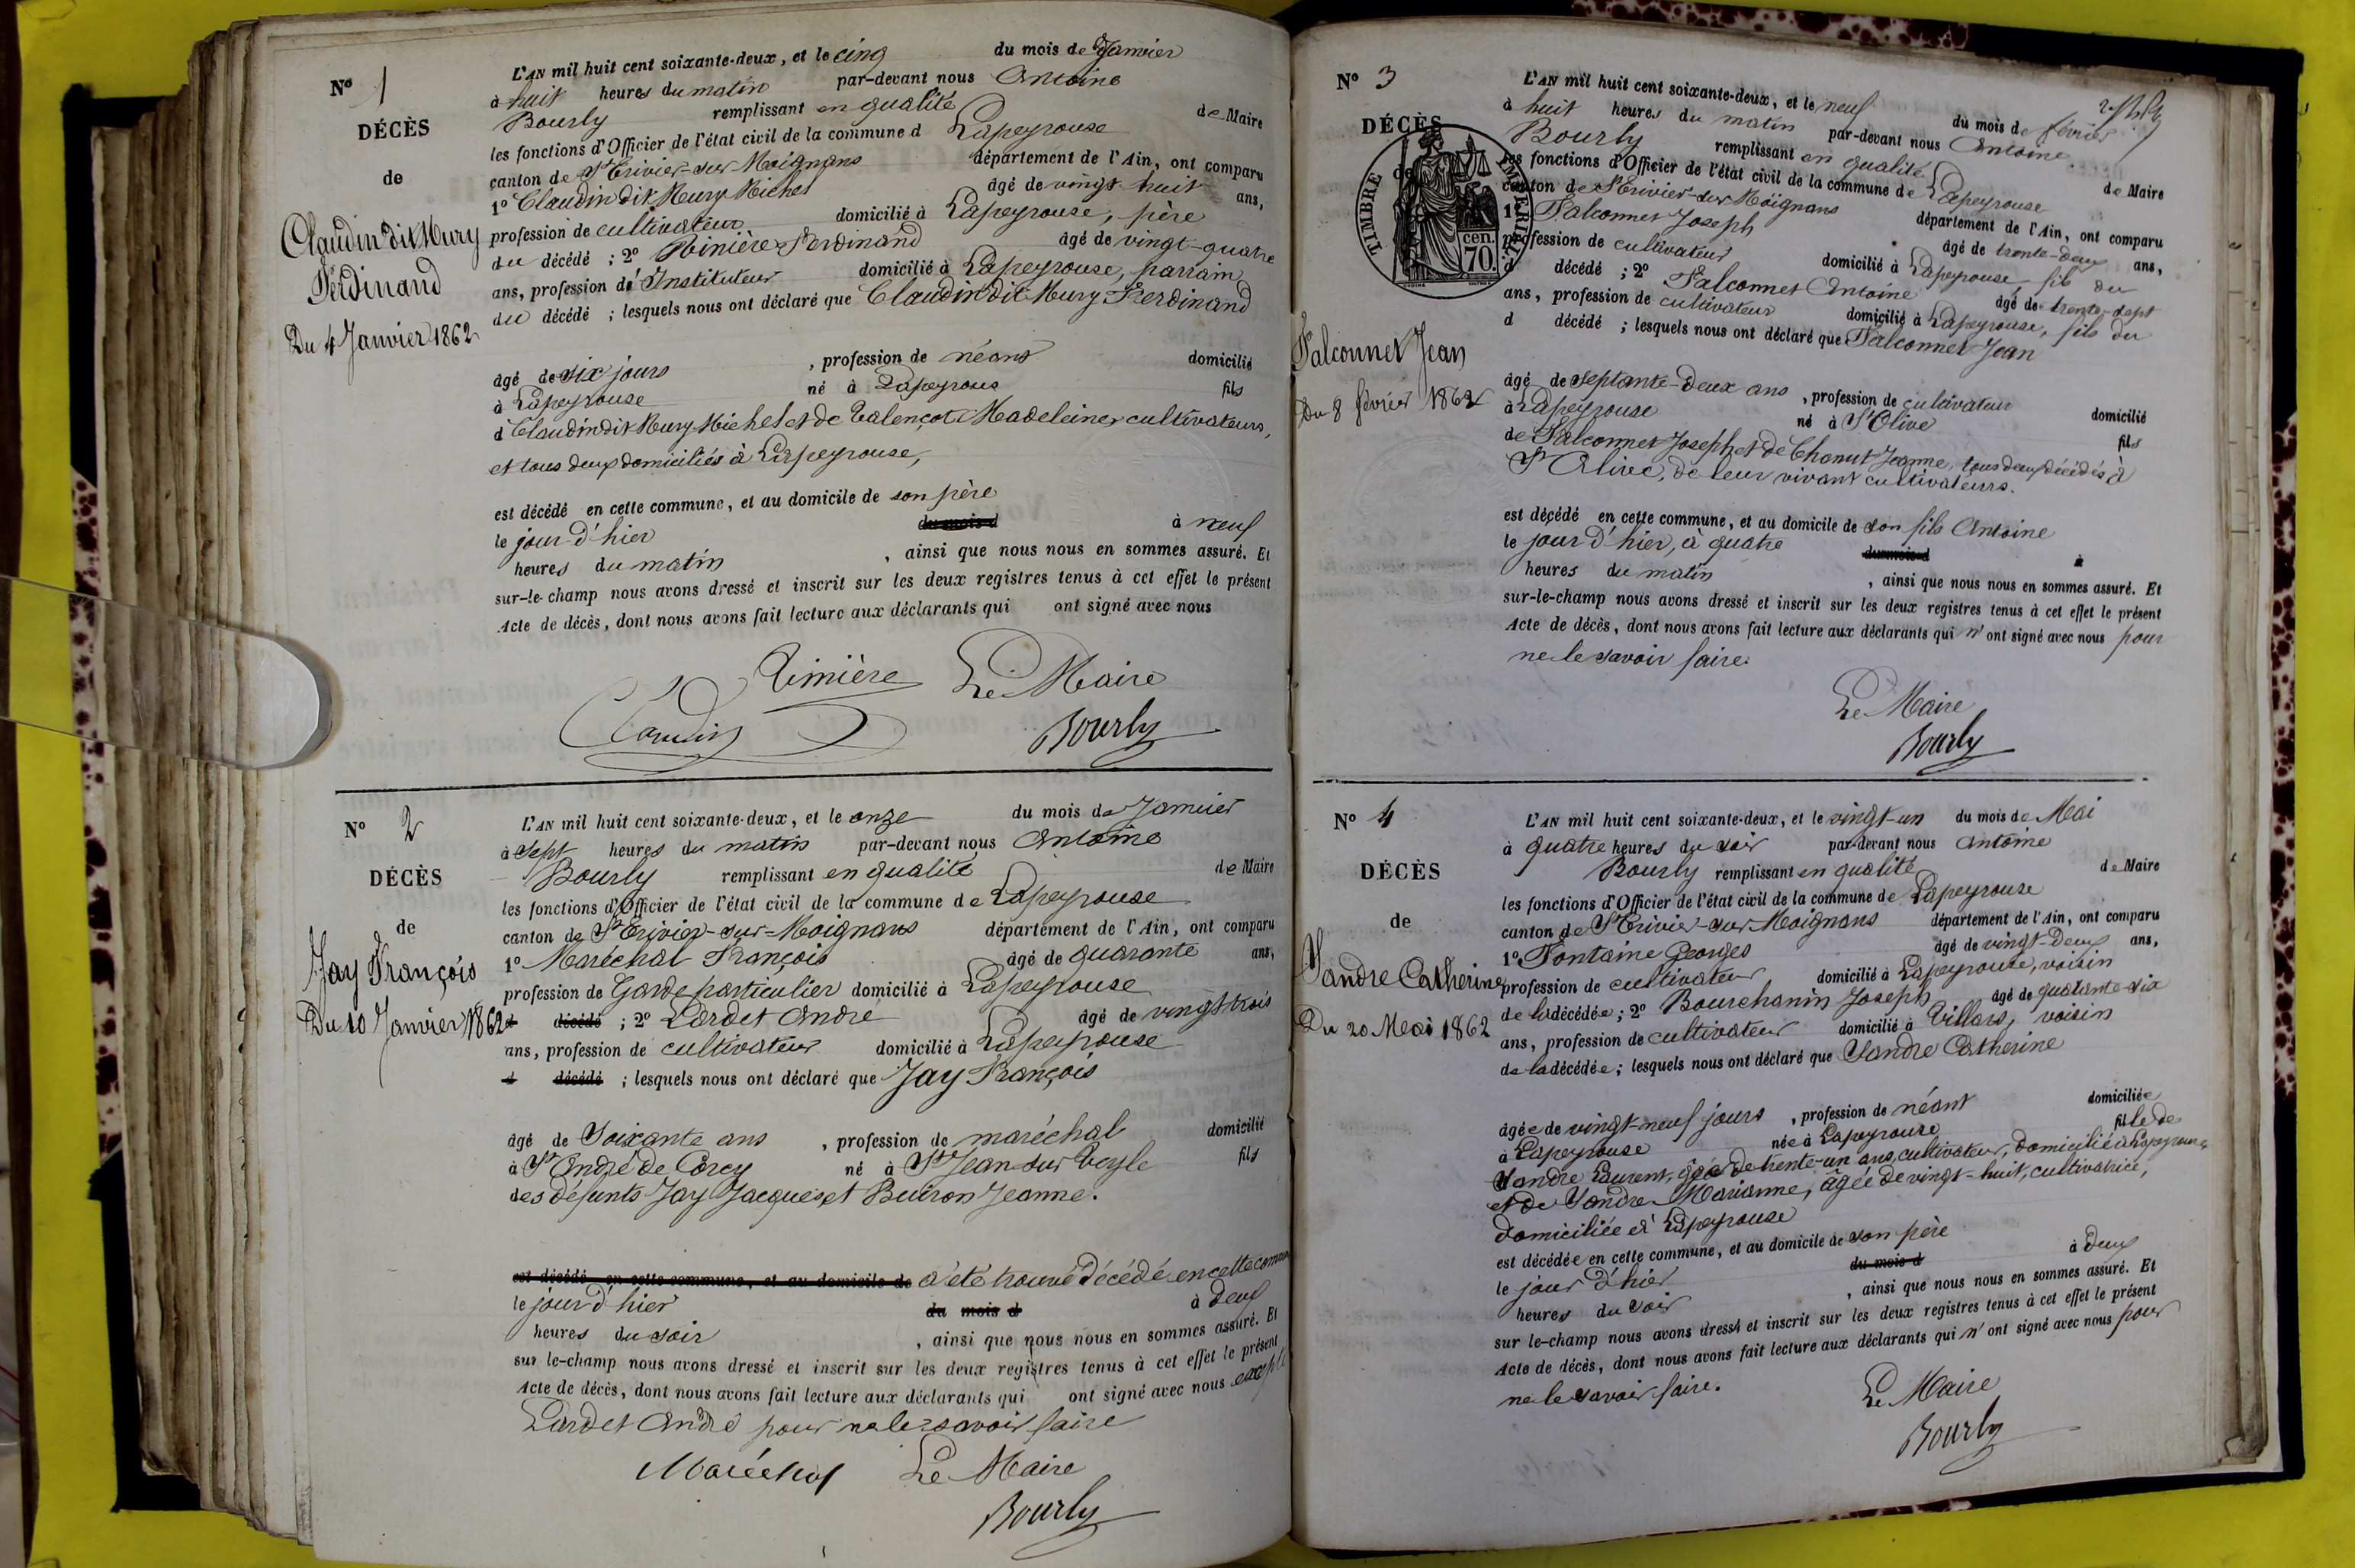 Nº 1
DÉCÈS
de
Claudin dit Mury
Ferdinand
Du 4 Janvier 1862
L'AN mil huit cent soixante-deux, et le cinq du mois de Janvier
à huit heures du matin par-devant nous Antoine
Bourly remplissant en qualité de Maire
les fonctions d'Officier de l'état civil de la commune d Lapeyrouse
canton de St Trivier-sur-Moignans département de l'Ain, ont comparu
1º Claudin dit Mury Michel âgé de vingt-huit ans,
profession de cultivateur domicilié à Lapeyrouse, père
du décédé ; 2º Ferdinand âgé de vingt-quatre
ans, profession d'Instituteur domicilié à Lapeyrouse, parrain
du décédé ; lesquels nous ont déclaré que Claudin dit Mury Ferdinand
âgé de six jours , profession de néant domicilié
à Lapeyrouse né à Lapeyrouse fils
d Claudin dit Mury Michel et de Talençot Madeleine, cultivateurs,
et tous deux domiciliés à Lapeyrouse,
est décédé en cette commune, et au domicile de son père
le jour d'hier du mois d à neuf
heures du matin , ainsi que nous nous en sommes assuré. Et
sur-le-champ nous avons dressé et inscrit sur les deux registres tenus à cet effet le présent
Acte de décès, dont nous avons fait lecture aux déclarants qui ont signé avec nous
Le Maire
Claudin Bourly
Nº 2
DÉCÈS
de
Jay François
Du 10 Janvier 1862
L'AN mil huit cent soixante-deux, et le onze du mois de Janvier
à sept heures du matin par-devant nous Antoine
Bourly remplissant en qualité de Maire
les fonctions d'Officier de l'état civil de la commune de Lapeyrouse
canton de St Trivier-sur-Moignans département de l'Ain, ont comparu
1º Maréchal François âgé de quarante ans,
profession de Garde particulier domicilié à Lapeyrouse
d décédé ; 2º Lardet André âgé de vingt-trois
ans, profession de cultivateur domicilié à Lapeyrouse
d décédé ; lesquels nous ont déclaré que Jay François
âgé de Soixante ans , profession de maréchal domicilié
à St André de Corcy né à St Jean-sur-Veyle fils
des défunts Jay Jacques et Buiron Jeanne.
est décédé en cette commune, et au domicile de a été trouvé décédé en cette commune
le jour d'hier du mois d à deux
heures du soir , ainsi que nous nous en sommes assuré. Et
sur le-champ nous avons dressé et inscrit sur les deux registres tenus à cet effet le présent
Acte de décès, dont nous avons fait lecture aux déclarants qui ont signé avec nous excepté
Lardet André pour ne le savoir faire
Maréchal Le Maire
Bourly
Nº 3
DÉCÈS
de
TIMBRE IMPERIAL
70 cen.
Falconnet Jean
Du 8 février 1862
L'AN mil huit cent soixante-deux, et le neuf du mois de février
à huit heures du matin par-devant nous Antoine
Bourly remplissant en qualité de Maire
les fonctions d'Officier de l'état civil de la commune de Lapeyrouse
canton de St Trivier-sur-Moignans département de l'Ain, ont comparu
1º Falconnet Joseph âgé de trente-deux ans,
profession de cultivateur domicilié à Lapeyrouse, fils du
d décédé ; 2º Falconnet Antoine âgé de trente-sept
ans, profession de cultivateur domicilié à Lapeyrouse, fils du
d décédé ; lesquels nous ont déclaré que Falconnet Jean
âgé de septante-deux ans , profession de cultivateur domicilié
à Lapeyrouse né à St Olive fils
de Falconnet Joseph et de Chanut Jeanne, tous deux décédés à
St Olive, de leur vivant cultivateurs.
est décédé en cette commune, et au domicile de son fils Antoine
le jour d'hier, à quatre du mois d à
heures du matin , ainsi que nous nous en sommes assuré. Et
sur-le-champ nous avons dressé et inscrit sur les deux registres tenus à cet effet le présent
Acte de décès, dont nous avons fait lecture aux déclarants qui n'ont signé avec nous pour
ne le savoir faire.
Le Maire
Bourly
Nº 4
DÉCÈS
de
Sandre Catherine
Du 20 Mai 1862
L'AN mil huit cent soixante-deux, et le vingt-un du mois de Mai
à quatre heures du soir par-devant nous Antoine
Bourly remplissant en qualité de Maire
les fonctions d'Officier de l'état civil de la commune de Lapeyrouse
canton de St Trivier-sur-Moignans département de l'Ain, ont comparu
1º Fontaine Georges âgé de vingt-deux ans,
profession de cultivateur domicilié à Lapeyrouse, voisin
de la décédée ; 2º Bourchanin Joseph âgé de quarante-six
ans, profession de cultivateur domicilié à Villars, voisin
de la décédée ; lesquels nous ont déclaré que Sandre Catherine
âgée de vingt-neuf jours , profession de néant domiciliée
à Lapeyrouse née à Lapeyrouse fille de
Sandre Laurent, âgé de trente-un ans, cultivateur, domicilié à Lapeyrouse,
et de Sandre Marianne, âgée de vingt-huit, cultivatrice,
domiciliée à Lapeyrouse
est décédée en cette commune, et au domicile de son père
le jour d'hier du mois d à deux
heures du soir , ainsi que nous nous en sommes assuré. Et
sur le-champ nous avons dressé et inscrit sur les deux registres tenus à cet effet le présent
Acte de décès, dont nous avons fait lecture aux déclarants qui n'ont signé avec nous pour
ne le savoir faire.
Le Maire
Bourly